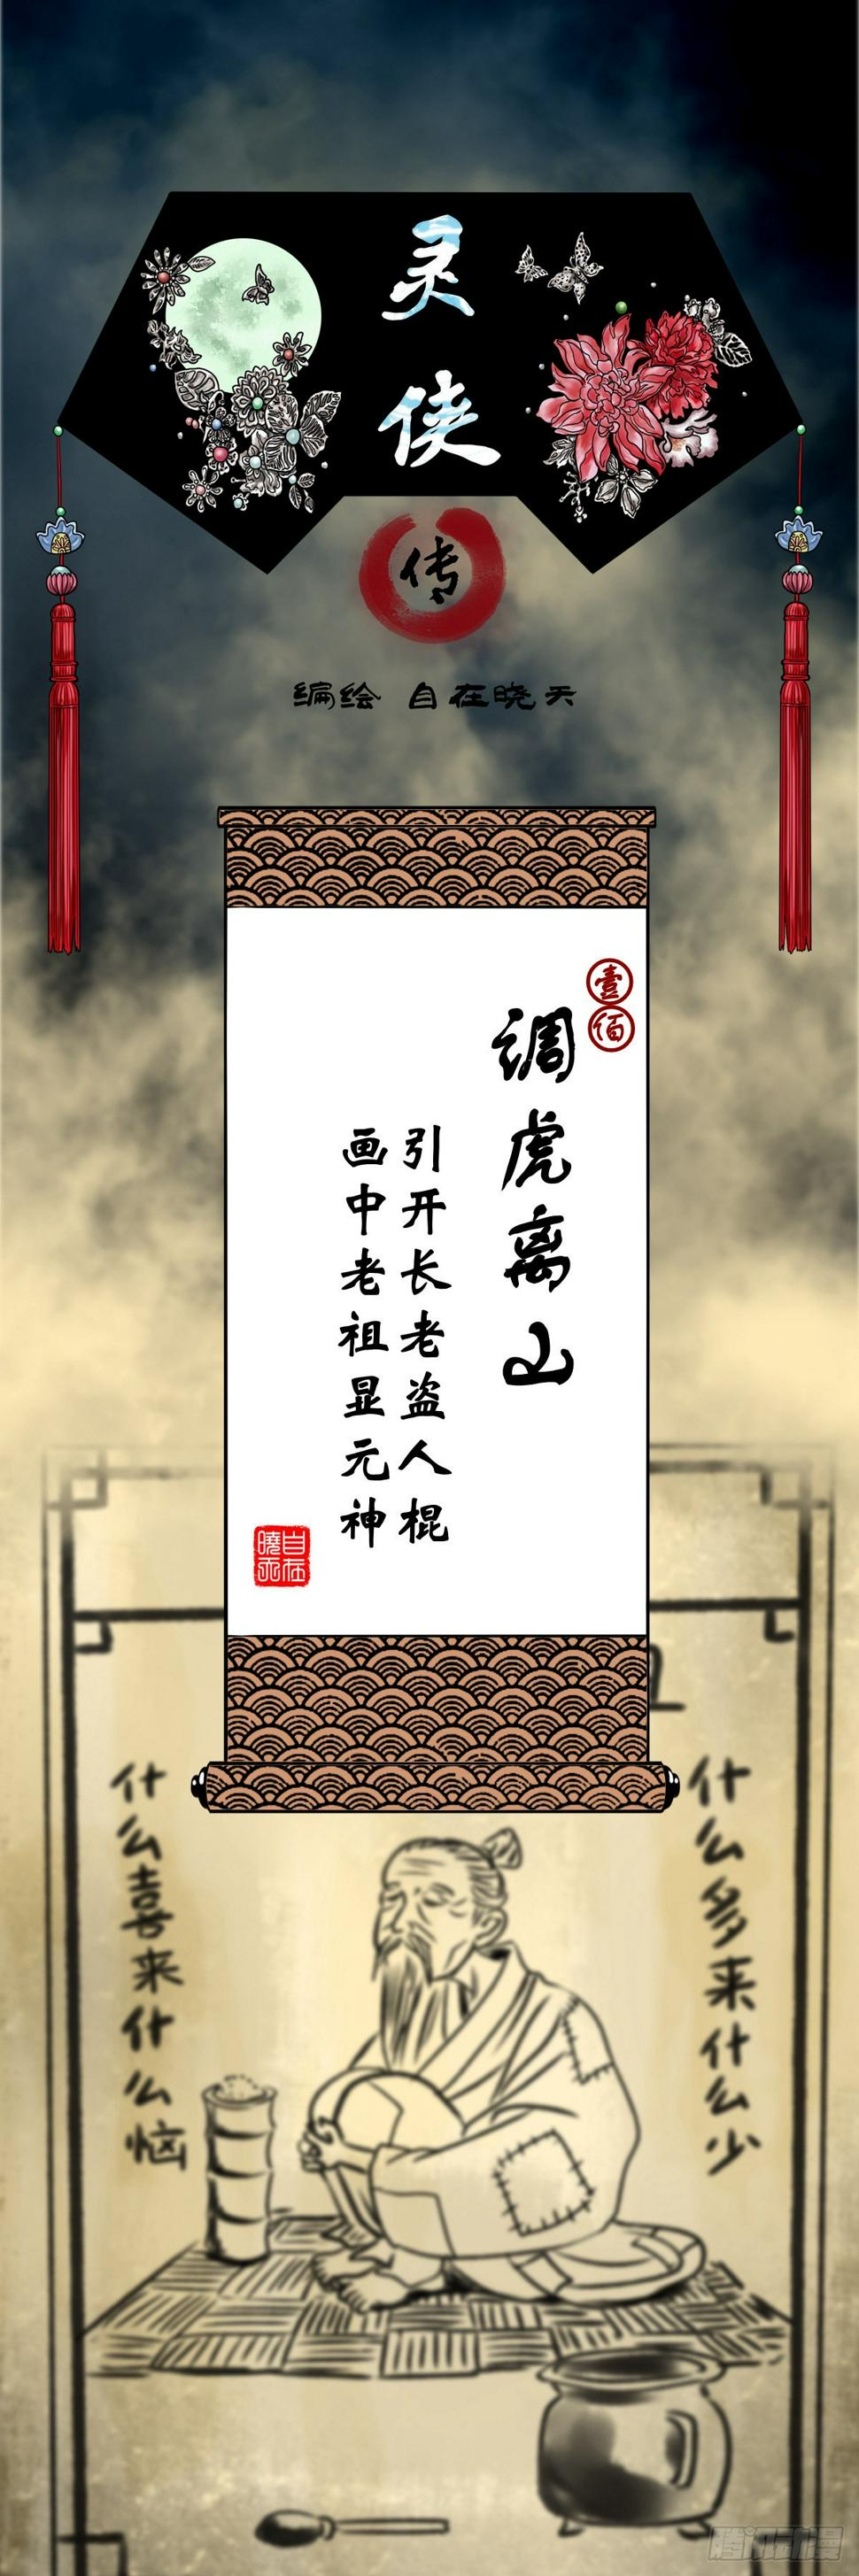 灵侠
传
编绘 自在晓天
壹佰
调虎离山
引开长老盗人棍
画中老祖显元神
自在曉天
什么多来什么少
什么喜来什么恼
腾讯动漫